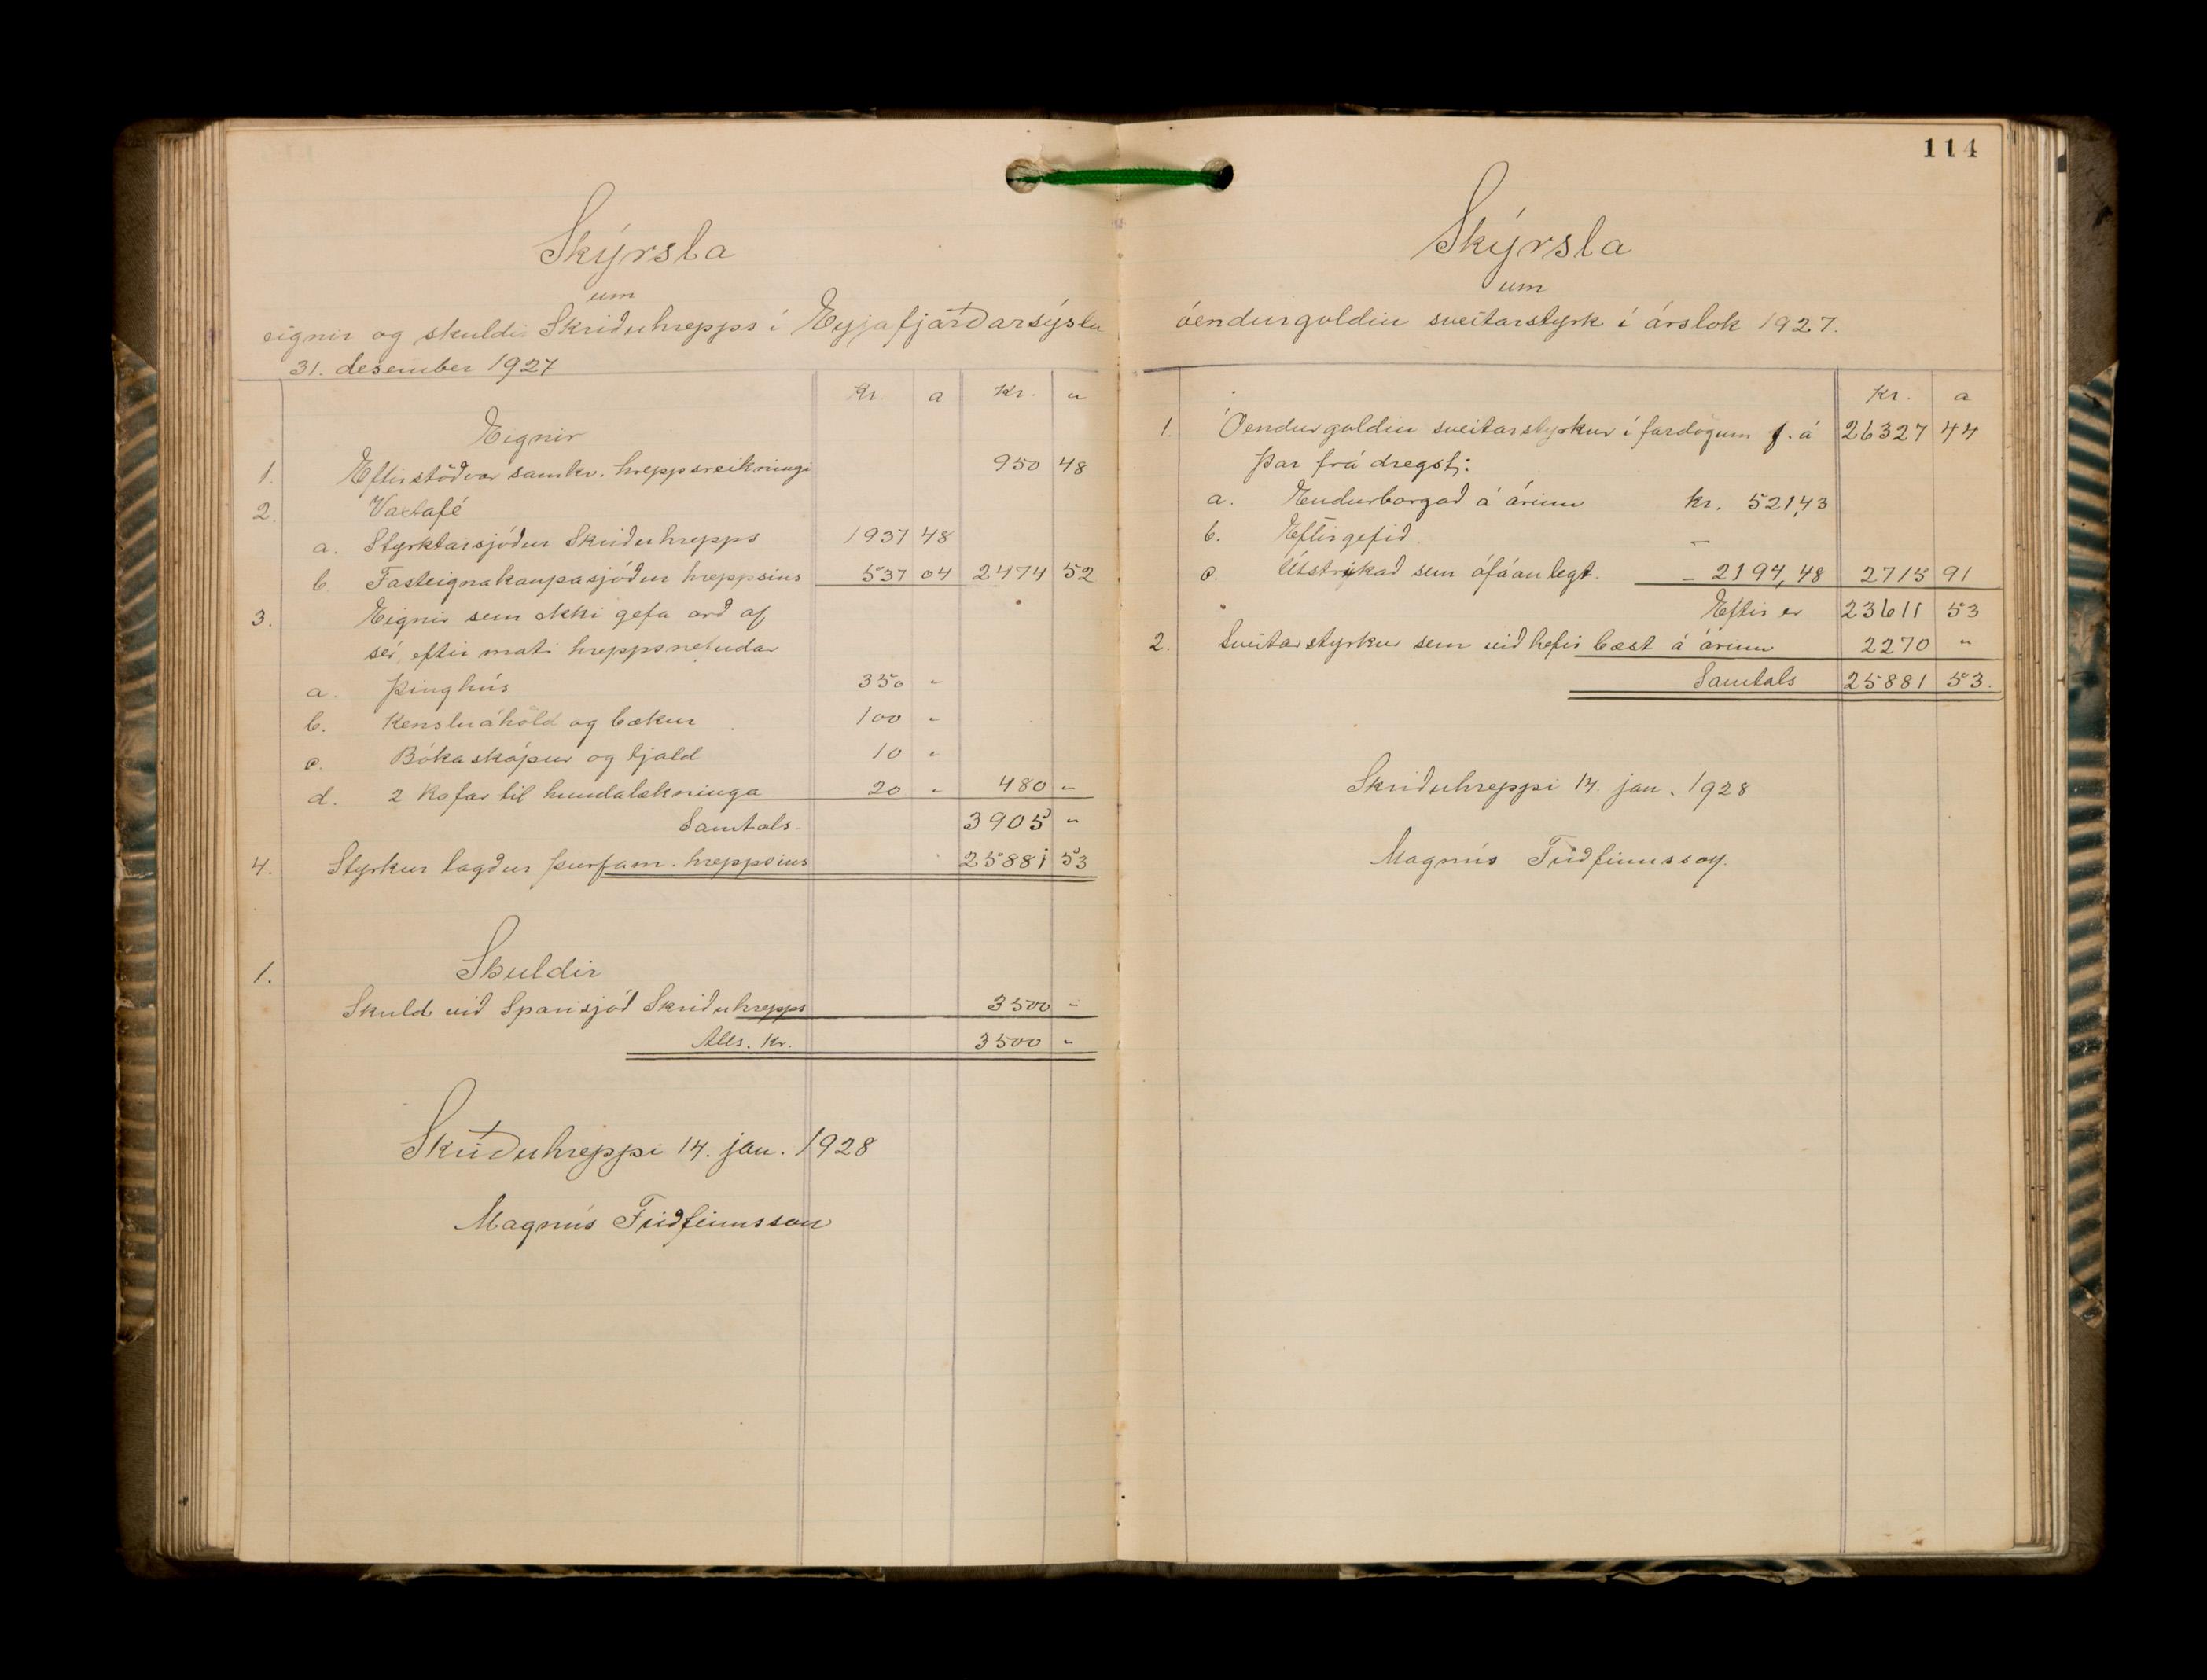 Skýrsla
um
eignir og skuldir Skriðuhrepps í Eyjafjarðarsýslu
31. desember 1927
Kr. a Kr. a
Eignir
1. Eftirstöðvar samkv. hreppsreikningi 950 48
2. Vaxtafé
a. Styrktarsjóður Skriðuhrepps 1937 48
b. Fasteignakaupasjóður hreppsins 537 04 2474 52
3. Eignir sem ekki gefa arð af
sér, eftir mati hreppsnefndar
a. Þinghús 350 "
b. Kensluáhöld og bækur 100 "
c. Bókaskápur og tjald 10 "
d. 2 Kofar til hundalækninga 20 " 480 "
Samtals 3905 "
4. Styrkur lagður þurfam. hreppsins 25881 53
Skuldir
1.
Skuld við Sparisjóð Skriðuhrepps 3500 "
Alls. Kr. 3500 "
Skriðuhreppi 14. jan. 1928
Magnús Friðfinnsson
114
Skýrsla
um
óendurgoldin sveitarstyrk í árslok 1927.
Kr. a
1. Óendurgoldin sveitarstyrkur í fardögum f. á 26327 44
Þar frá dregst:
a. Endurborgað á árinu kr. 521,43
b. Eftirgefið. —
c. Útstrykað sem ófáanlegt. – 2194,48 2715 91
Eftir er 23611 53
2. Sveitarstyrkur sem við hefir bæst á árinu 2270 "
Samtals 25881 53.
Skriðuhreppi 14. jan. 1928
Magnús Friðfinnsson.